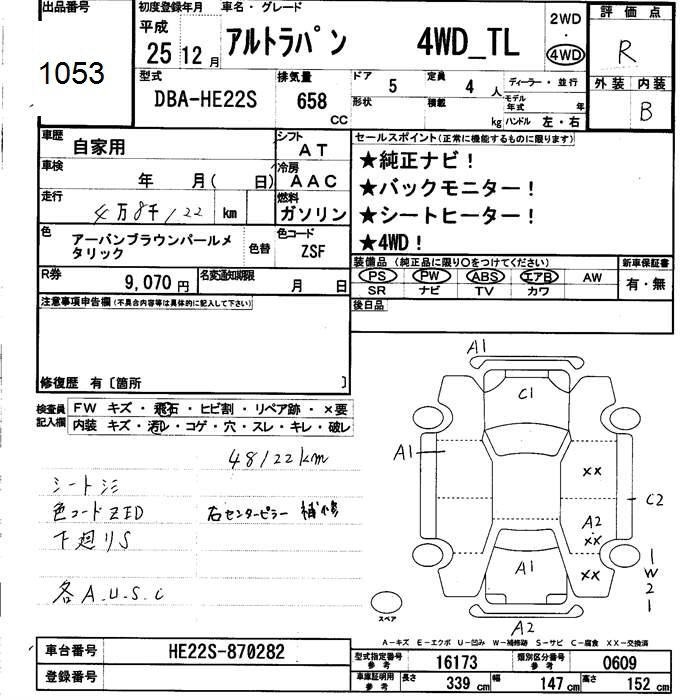 出品番号
1053
初度登録年月
平成
25 12 月
車名・グレード
アルトラパン 4WD_TL
2WD
・
4WD
評価点
R
外装 内装
B
型式
DBA-HE22S
排気量
658
CC
ドア
5
定員
4 人
ディーラー・並行
形状
積載
kg
モデル年式
年
ハンドル 左・右
車歴
自家用
シフト
AT
車検
年 月( 日)
冷房
AAC
走行
4万8千122 km
燃料
ガソリン
色
アーバンブラウンパールメ
タリック
色替
色コード
ZSF
R券
9,070 円
名変通知期限
月 日
セールスポイント(正常に機能するものに限ります)
★純正ナビ!
★バックモニター!
★シートヒーター!
★4WD!
装備品(純正品に限り〇をつけてください)
PS PW ABS エアB AW
SR ナビ TV カワ
新車保証書
有・無
後日品
注意事項申告欄(不具合内容等は具体的に記入して下さい)
修復歴 有〔箇所 〕
検査員
記入欄
FW キズ・飛石・ヒビ割・リペア跡・×要
内装 キズ・汚レ・コゲ・穴・スレ・キレ・破レ
48122km
シートシミ
色コードZED
右センターピラー 補修
下廻りS
各A.U.S.C
A1
C1
A1
XX
C2
A2
XX
A1
XX
1
W
2
1
スペア
A2
A-キズ E-エクボ U-凹み W-補修跡 S-サビ C-腐食 XX-交換済
車台番号
HE22S-870282
登録番号
型式指定番号
参考
16173
類別区分番号
参考
0609
車庫証明用
参考
長さ
339 cm
幅
147 cm
高さ
152 cm